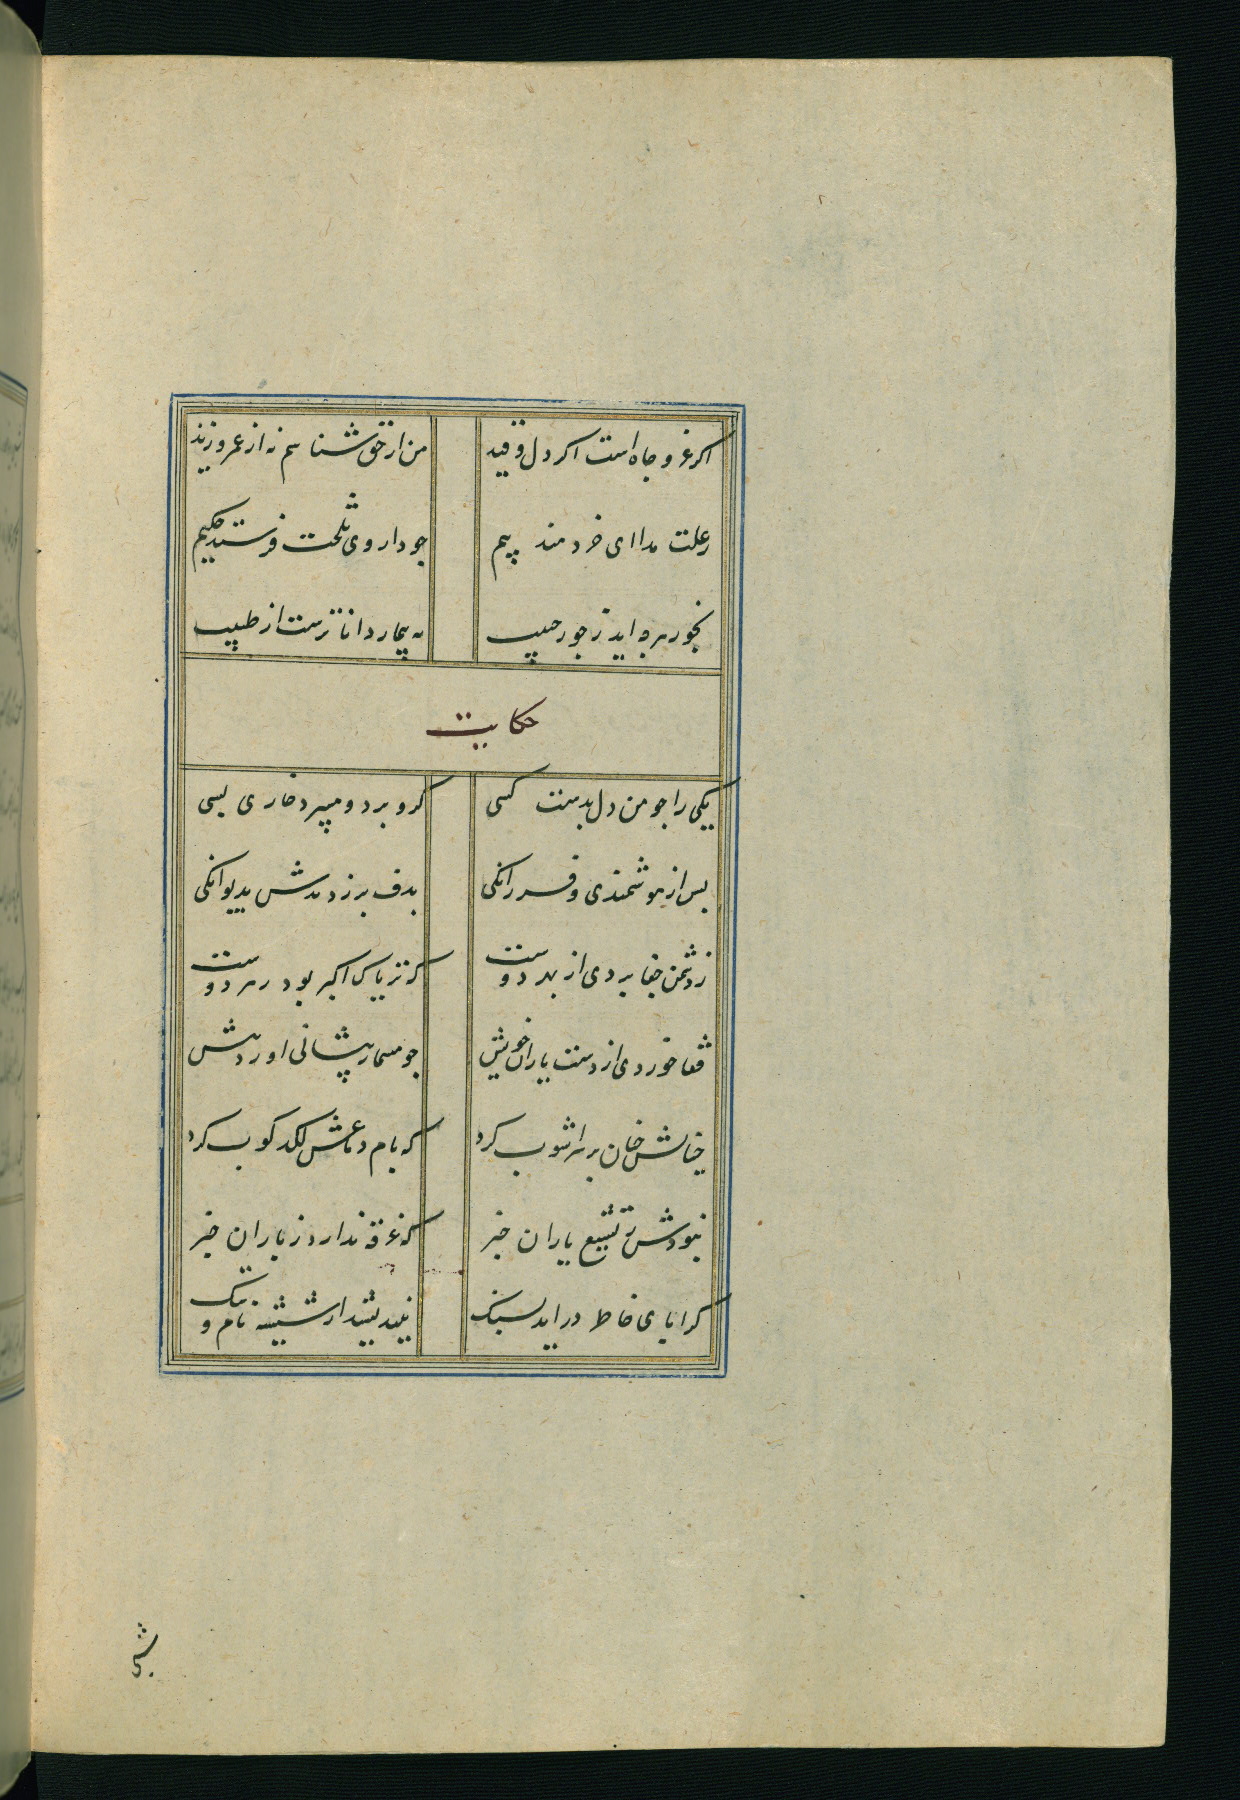 اکر عز و جاه است اکر دل و قید
من از حق شناسم نه از عمرو زید
ز علت مدار ای خردمند پیم
جو داروی تلخت فرستد حکیم
بخور هرجه اید ز جور حبیب
نه پیمار داناترست از طبیب
حکایت
یکی را جو من دل بدست کسی
کرو برد و میبرد خاری بسی
بس از هوشمندی و فرزانکی
بدف برزدندش بدیوانکی
ز دشمن جفا بردی از بهر دوست
که تریاک اکبر بود زهر دوست
قفا خوردی از دست یاران خویش
جو مسمار پیشانی اورد پیش
خیالش جنان بر سر اشوب کرد
که بام دماغش لکدکوب کرد
نبودش ز تشنیع یاران خبر
که غرقه ندارد ز باران خبر
کرا پای خاطر در اید بسنک
نیندیشد از شیشه نام و ننک
شبی